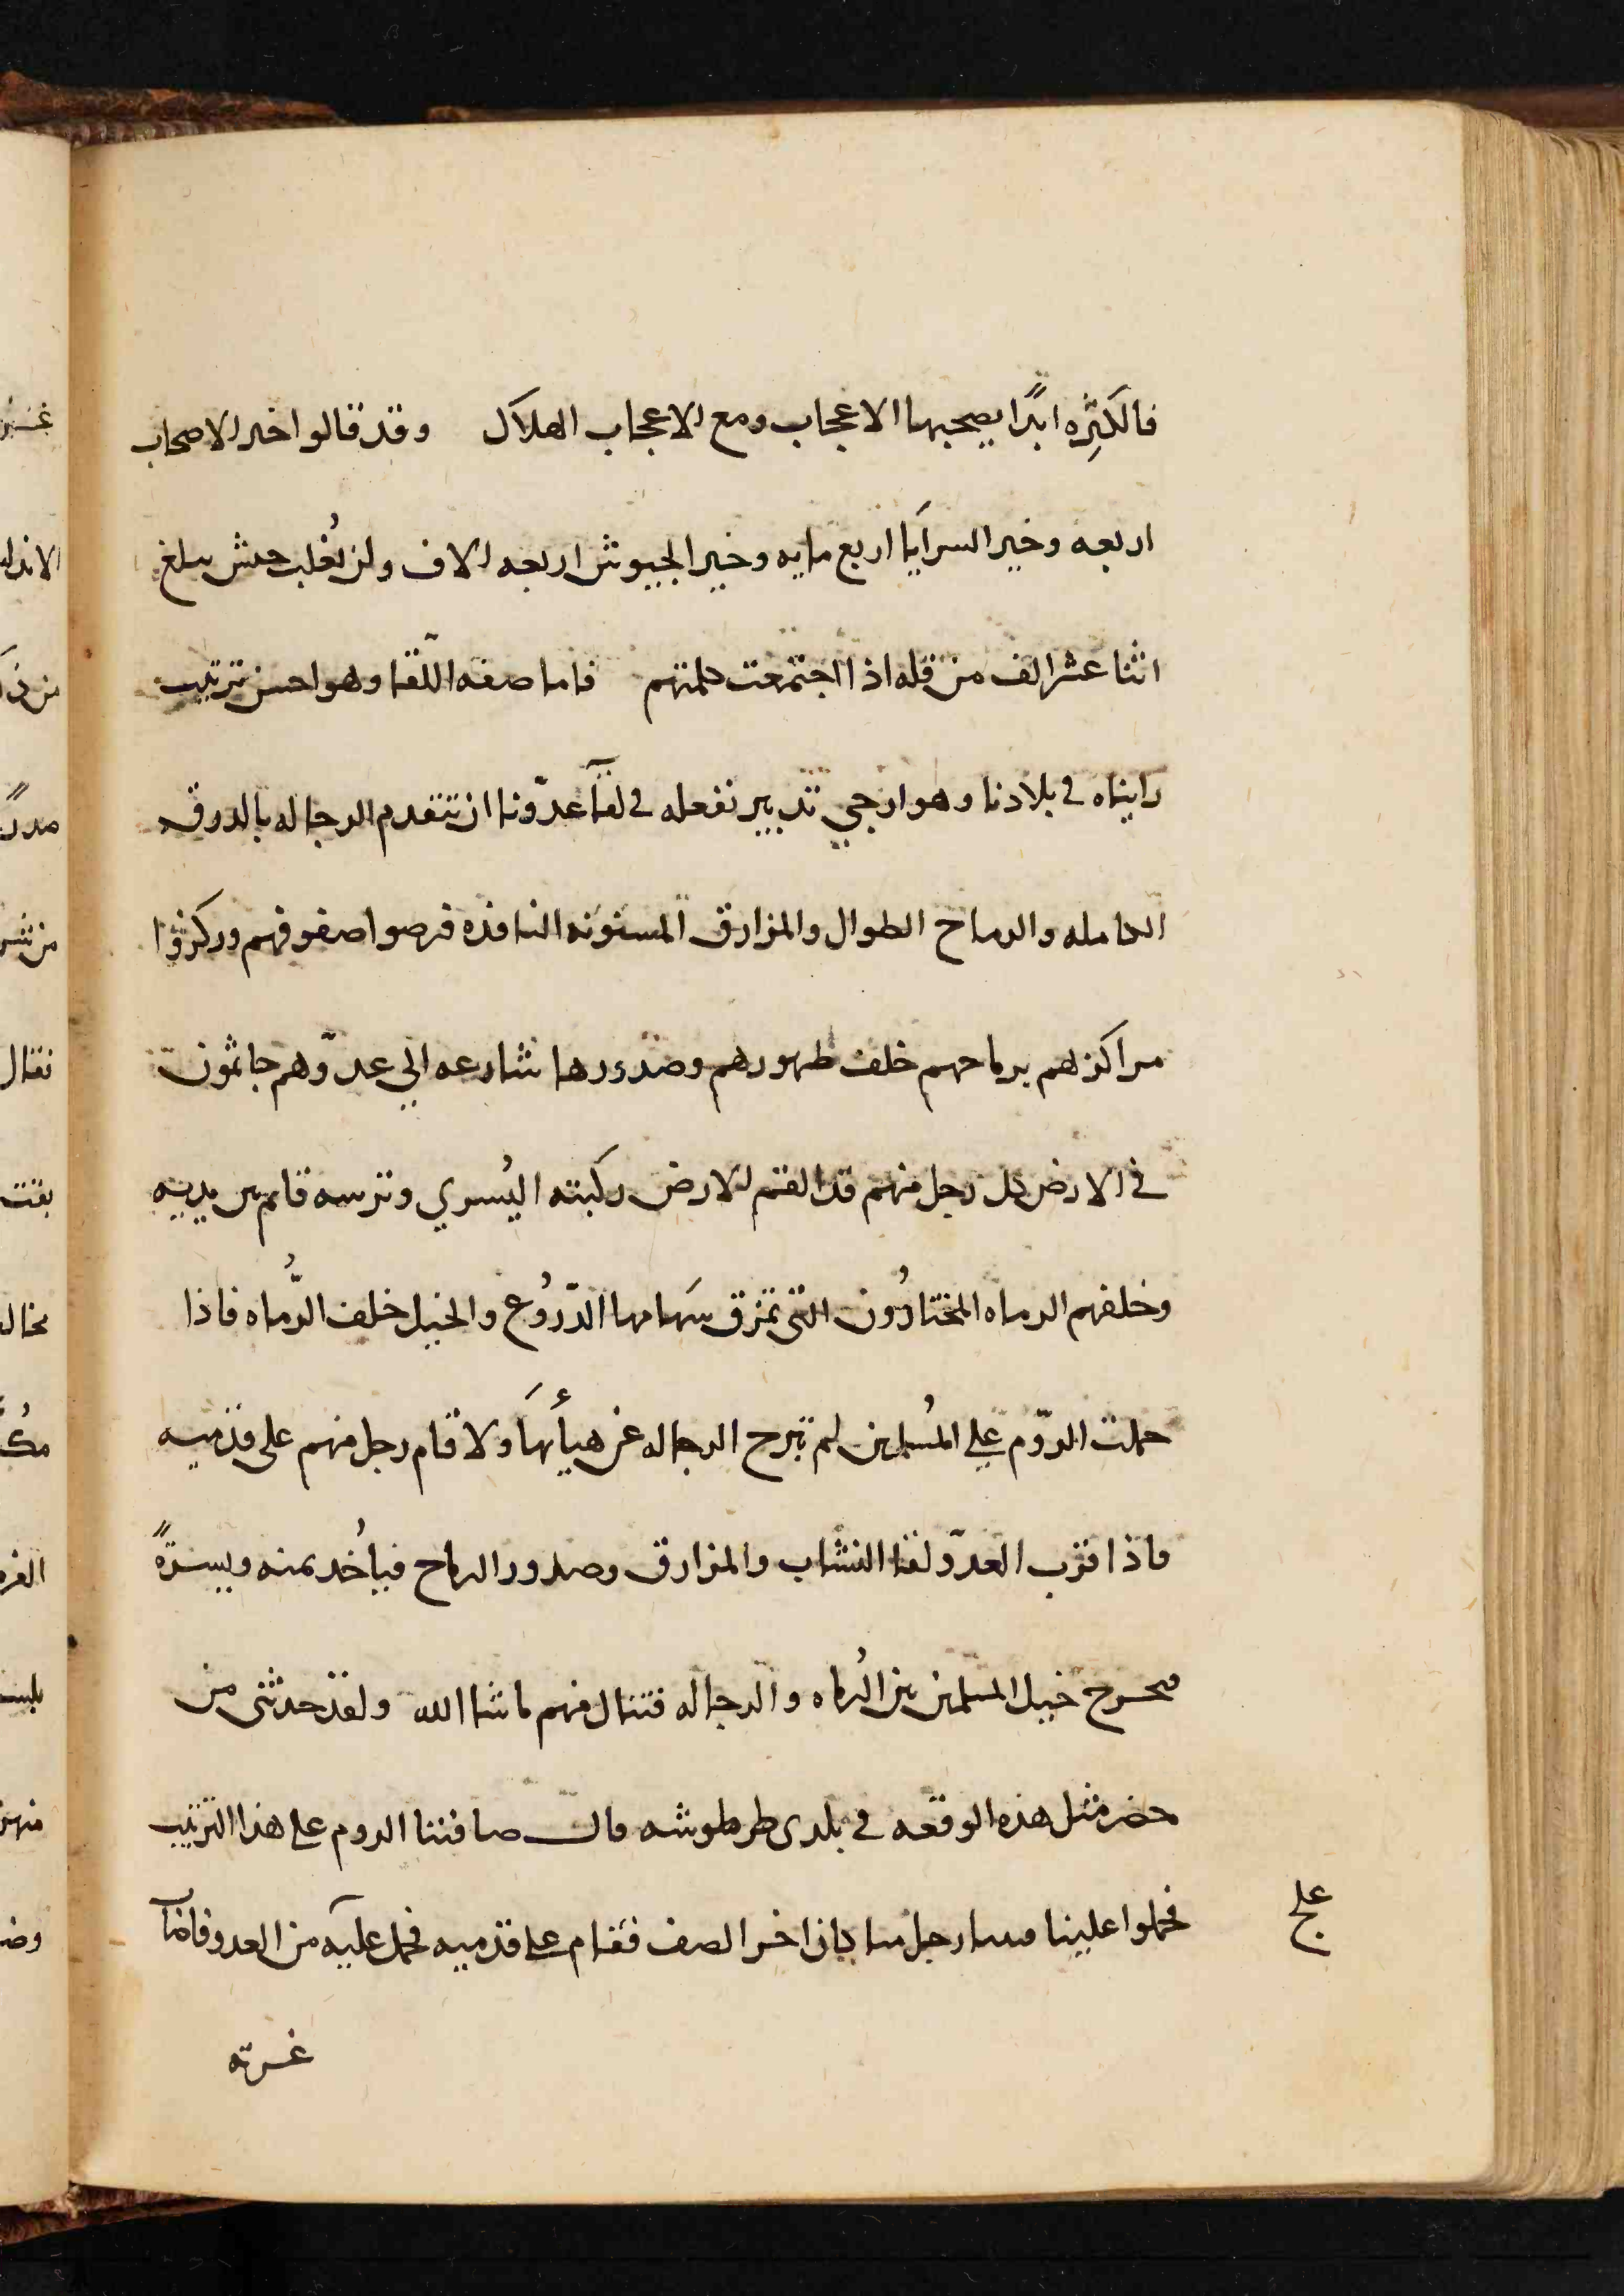 فالكَثِرّه ابدًا يصحبها الاعجاب ومع الاعجاب الهلاك وقد قالوا خير الاصحاب
اربعه وخير السرَايا اربع مايه وخير الجيوش اربعه الاف ولن يُغلب جيش يبلغ
اثنا عشر الف من قله اذا اجتمعت كلمتهم فاما صفه اللّقا وهو احسن ترتيب
رايناه في بلادنا وهو ارجي تدبير نفعله في لقآ عدّونا ان تتقدم الرجاله بالدرق
الكامله والرماح الطوال والمزارق المسنونه النافذه فرصوا صفوفهم وركزوا
مراكزهم برماحهم خلف ظهورهم وصدورها شارعه الي عدوّهم جاثمون
في الارض كل رجل منهم قد القم الارض ركبته اليُسري وترسه قايم بين يديه
وخلفهم الرماه المختارُون التى تمزق سَهامها الدّروُع والخيل خلف الرُّماه فاذا
حملت الروّم علي المُسلمين لم تبرح الرجاله عن هيأتهَا ولا قام رجل منهم على قدميه
فاذا قرب العدّو لقا النشاب والمزارق وصدور الرماح فياخُد يمنه ويسرةً
فتخرج خيل المسلمين بين الرُماه والرجاله فتنال منهم ماشا الله ولقد حدثنى من
حضر مثل هذه الوقعه في بلدى طرطوشه قال صاففنا الروم على هذا الترتيب
فحملوا علينا رجل منا كان اخر الصف فقام على قدميه فحمل عليه من العدو فاصاب
علج
غرته